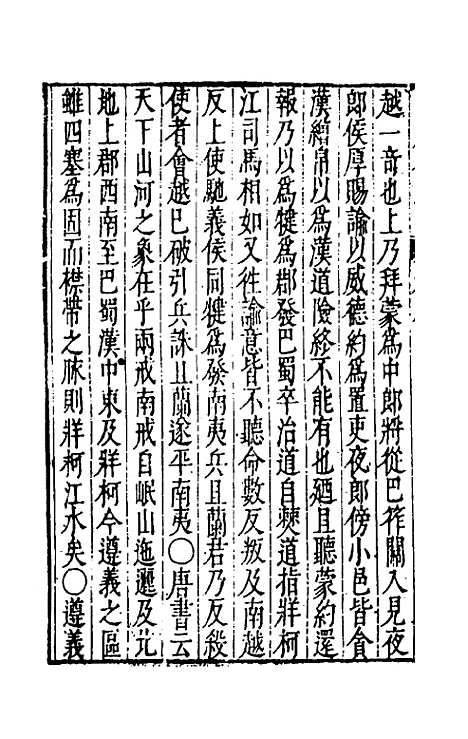 越一奇也上乃拜蒙爲中郎將從巴筰關入見夜
郎侯厚賜諭以威德約爲置吏夜郎傍小邑皆貪
漢繒帛以爲漢道險終不能有也廼且聽蒙約還
報乃以爲犍爲郡發巴蜀卒治道自僰道指牂柯
江司馬相如又徃諭意皆不聽命數反叛及南越
反上使馳義侯同犍爲發南夷兵且蘭君乃反殺
使者會越巳破引兵誅且蘭遂平南夷〇唐書云
天下山河之象在乎兩戒南戒自岷山迤邐及北
地上郡西南至巴蜀漢中東及牂柯今遵義之區
雖四塞爲固而襟帶之脉則牂柯江水矣〇遵義